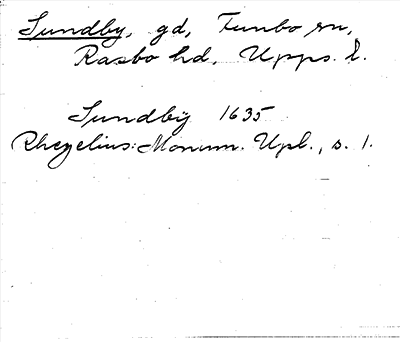 Sundby, gd, Funbo sn,
Rasbo hd, Upps. l.
Sundbÿ 1635
Rhezelius: Monum. Upl., s. 1.